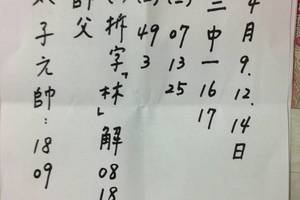 4月9.12.14日
三中一16 17
(二) 07 13 25
(三) 49 3
拆字「林」解 08 18
師父
太子元帥: 18 09